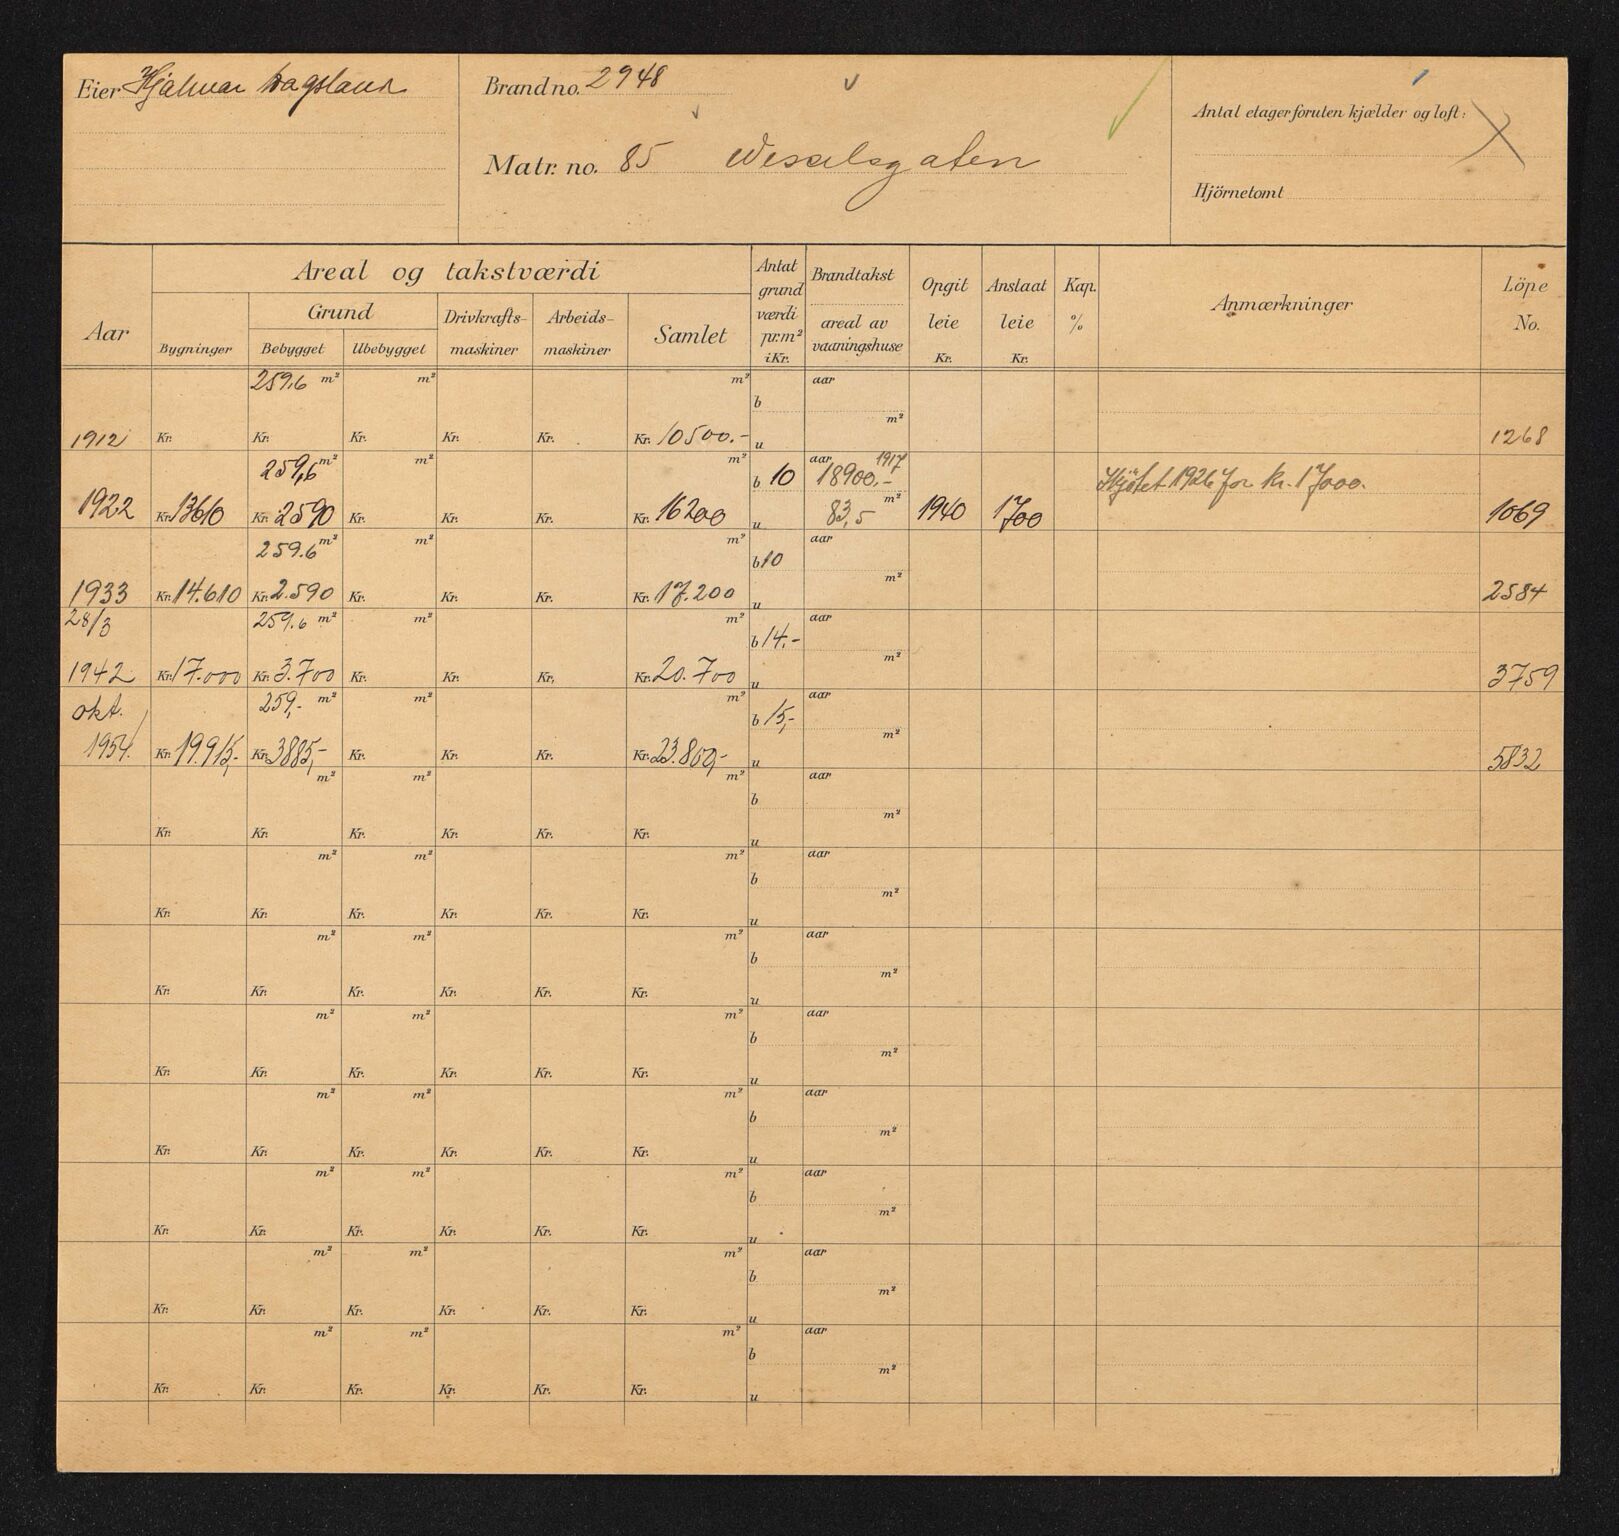 Eier Hjalmar
Brand no. 2948
Matr. no. 85 Wesselsgaten
Antal etager foruten kjælder og loft:
Hjörnetomt
Areal og takstværdi
Aar
Bygninger
Grund
Bebygget
Ubebygget
Drivkrafts-
maskiner
Arbeids-
maskiner
Samlet
Antat
grund
værdi
pr. m²
i Kr.
Brandtakst
areal av
vaaningshuse
Opgit
leie
Kr.
Anslaat
leie
Kr.
Kap.
%
Anmærkninger
Löpe
No.
259.6 m² m² m² b aar
1912 Kr. Kr. Kr. Kr. Kr. Kr. 10500.- u m² 1268
259,6 m² m² m² b 10 aar 1917 18900.- Kjøbt 1926 for kr. 17000.
1922 Kr. 13610 Kr. 2590 Kr. Kr. Kr. Kr. 16200 u 83,5 m² 1940 1700 1069
259.6 m² m² m² b 10 aar
1933 Kr. 14.610 Kr. 2.590 Kr. Kr. Kr. Kr. 17.200 u m² 2584
28/3 259.6 m² m² m² b 14.- aar
1942 Kr. 17.000 Kr. 3.700 Kr. Kr. Kr. Kr. 20.700 u m² 3759
okt. 259,- m² m² m² b 15,- aar
1954. Kr. 19.915,- Kr. 3885,- Kr. Kr. Kr. Kr. 23.800,- u m² 5832
m² m² m² b aar
Kr. Kr. Kr. Kr. Kr. Kr. u m²
m² m² m² b aar
Kr. Kr. Kr. Kr. Kr. Kr. u m²
m² m² m² b aar
Kr. Kr. Kr. Kr. Kr. Kr. u m²
m² m² m² b aar
Kr. Kr. Kr. Kr. Kr. Kr. u m²
m² m² m² b aar
Kr. Kr. Kr. Kr. Kr. Kr. u m²
m² m² m² b aar
Kr. Kr. Kr. Kr. Kr. Kr. u m²
m² m² m² b aar
Kr. Kr. Kr. Kr. Kr. Kr. u m²
m² m² m² b aar
Kr. Kr. Kr. Kr. Kr. Kr. u m²